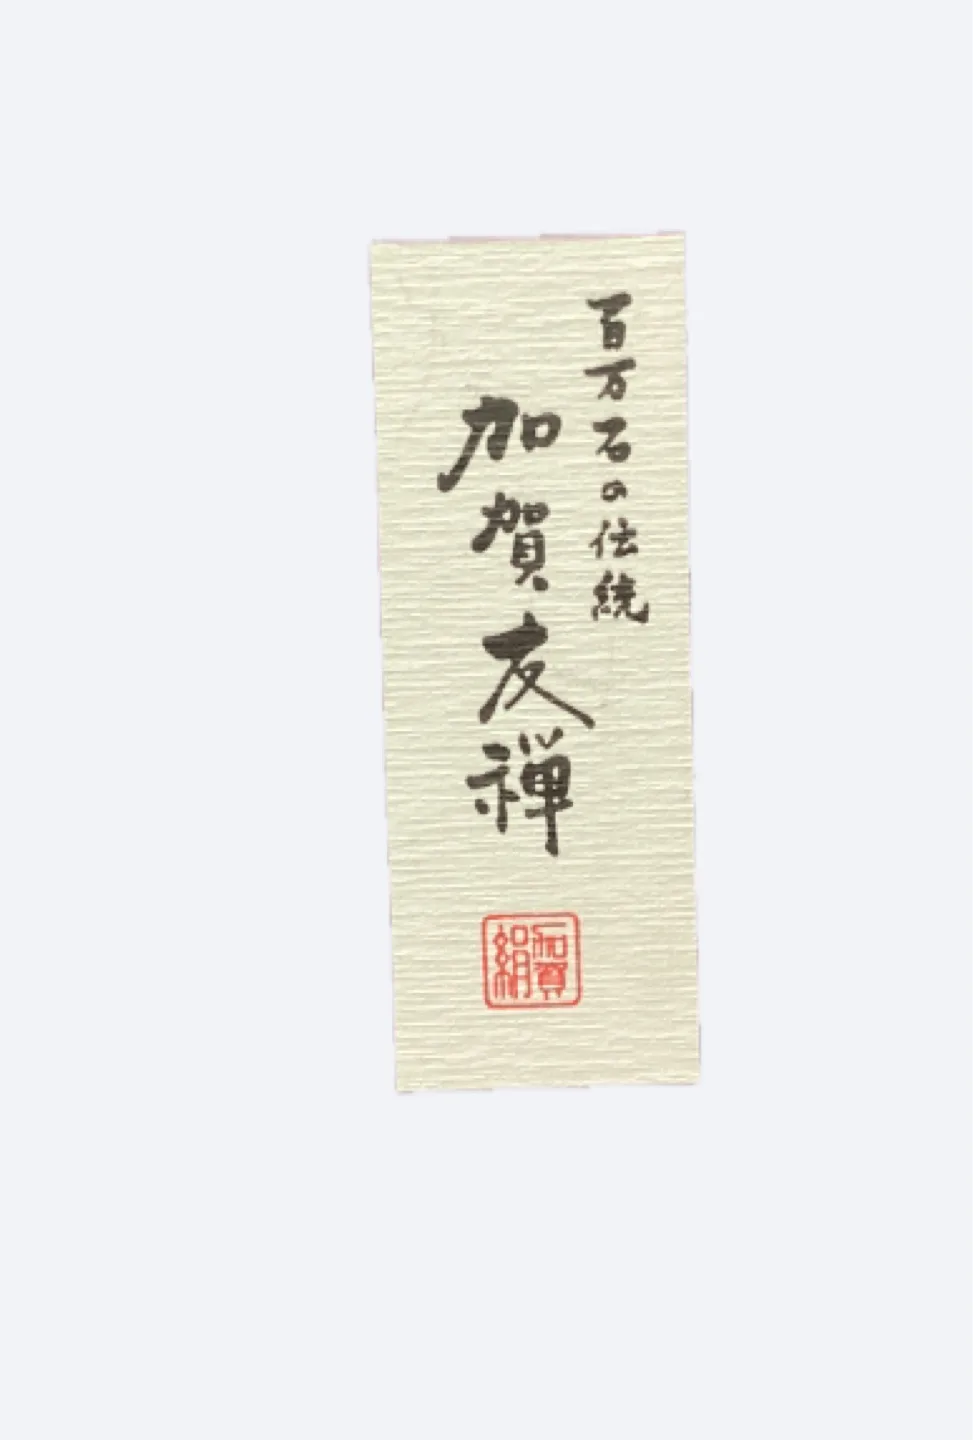 百万石の伝統
加賀友禅
加賀
絹